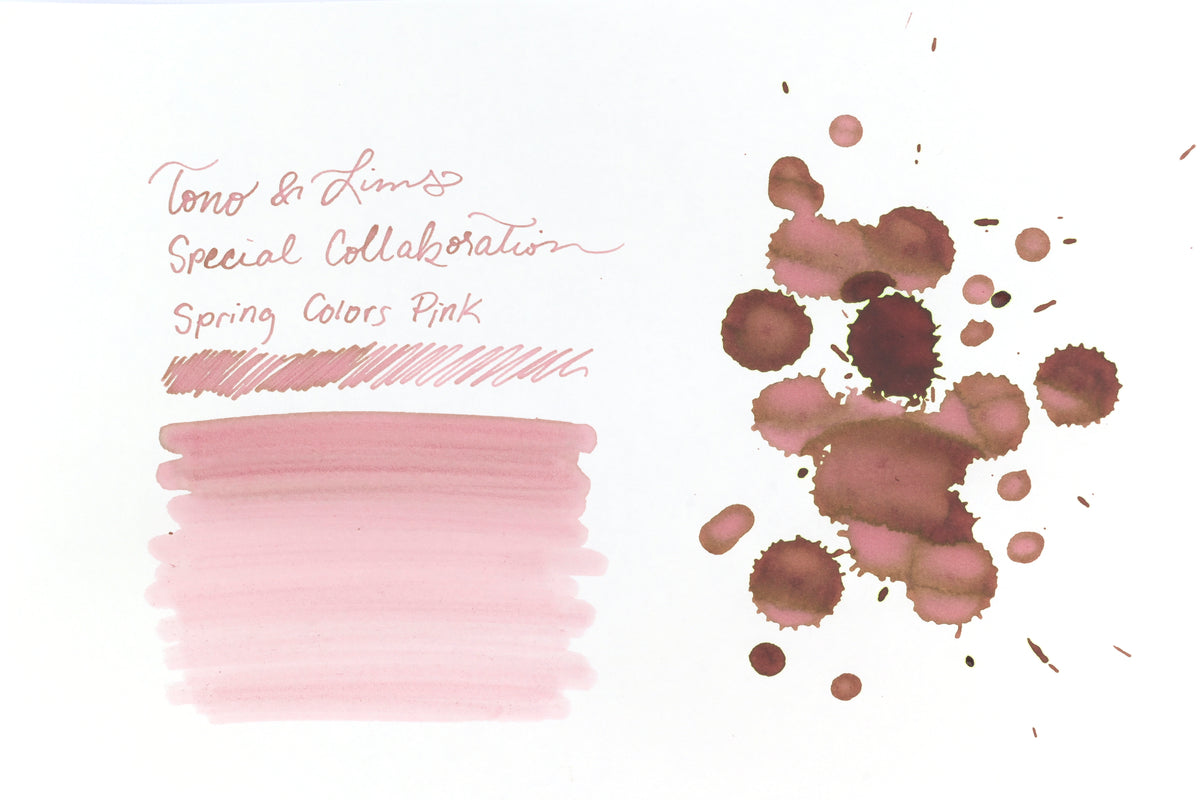 Tono & Lims
Special Collaboration
Spring Colors Pink